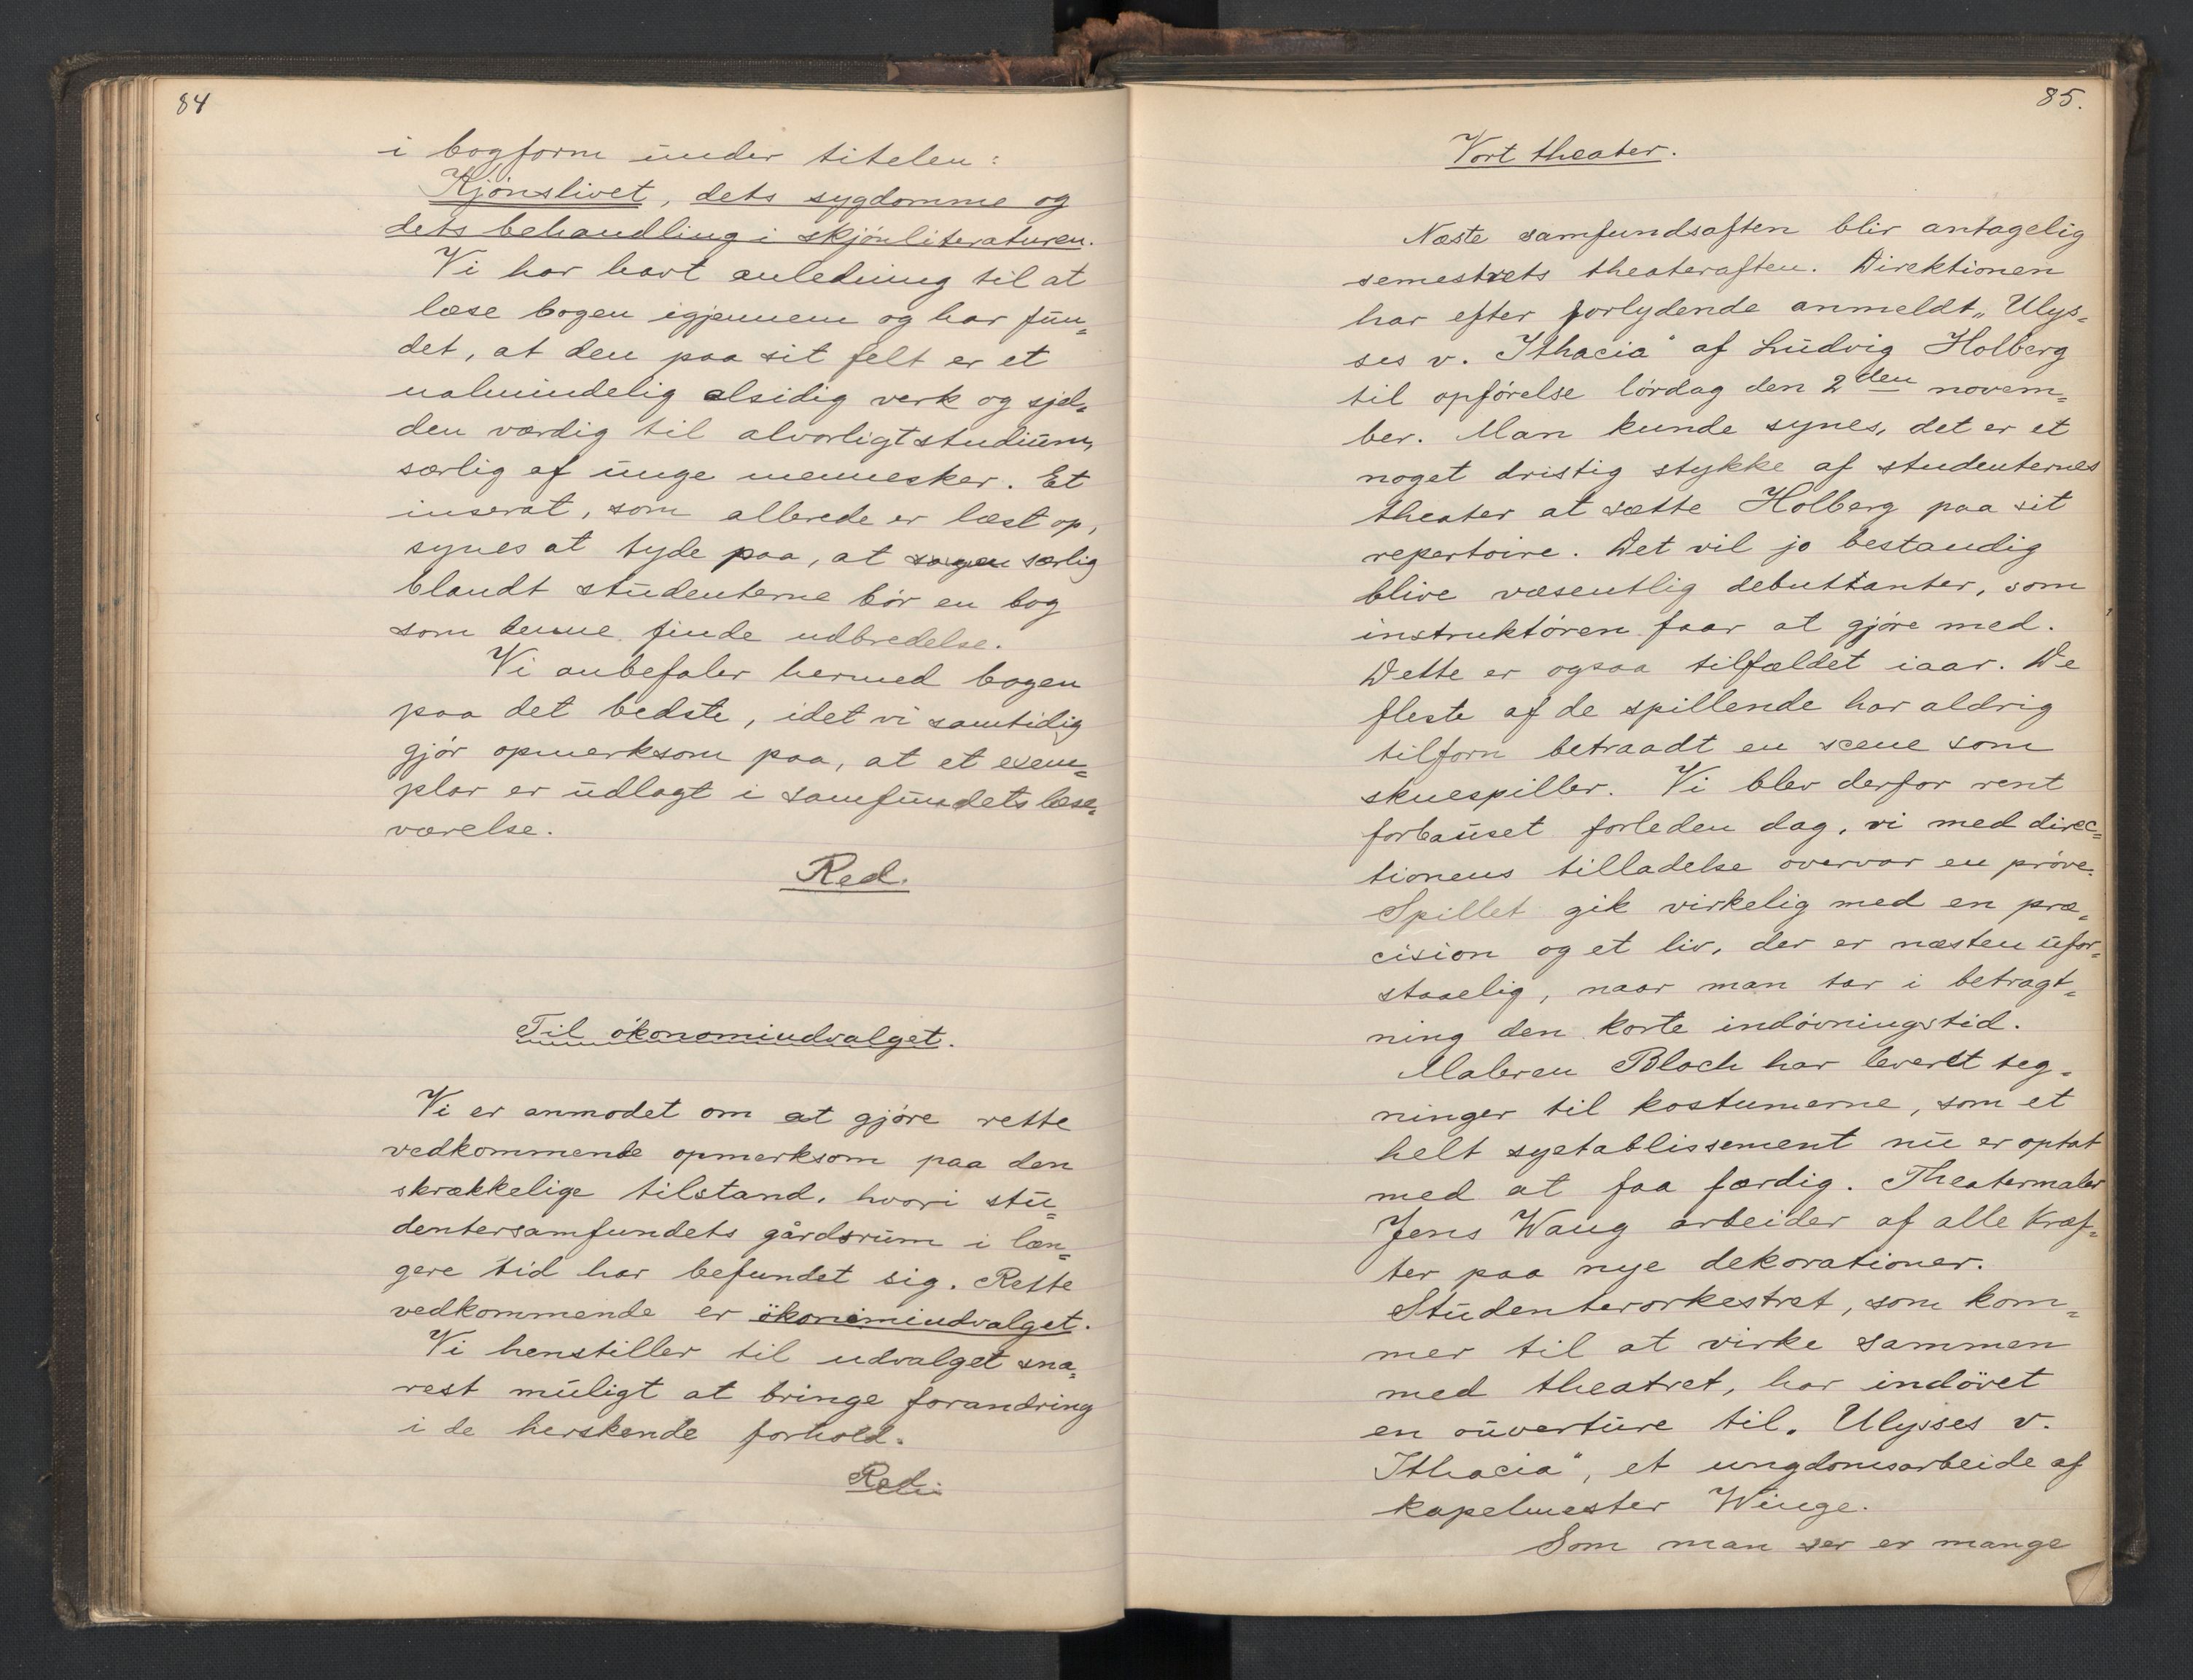 84
i bogform under titelen:
Kjönslivet, dets sygdomme og
dets behandling i skjönliteraturen.
Vi har havt anledning til at
læse bogen igjennem og har fun=
det, at den paa sit felt er et
ualmindelig alsidig verk og sjel=
den værdig til alvorligt studium,
særlig af unge mennesker. Et
inserat, som allerede er læst op,
synes at tyde paa, at sogen særlig
blandt studenterne bör en bog
som denne finde udbredelse.
Vi anbefaler hermed bogen
paa det bedste, idet vi samtidig
gjör opmerksom paa, at et exem=
plar er udlagt i samfundets læse=
værelse.
Red.
Til ökonomiudvalget.
Vi er anmodet om at gjöre rette
vedkommende opmerksom paa den
skrækkelige tilstand, hvori stu=
dentersamfundets gårdsrum i læn=
gere tid har befundet sig. Rette
vedkommende er ökonimiudvalget.
Vi henstiller til udvalget sna=
rest muligt at bringe forandring
i de herskende forhold.
Red.
85.
Vort theater.
Næste samfundsaften blir antagelig
semestrets theateraften. Direktionen
har efter forlydende anmeldt „Ulys=
ses v. Ithacia“ af Ludvig Holberg
til opförelse lördag den 2den novem=
ber. Man kunde synes, det er et
noget dristig stykke af studenternes
theater at sætte Holberg paa sit
repertoire. Det vil jo bestandig
blive væsentlig debuttanter, som
instruktören faar at gjöre med.
Dette er ogsaa tilfældet iaar. De
fleste af de spillende har aldrig
tilforn betraadt en scene som
skuespiller. Vi blev derfor rent
forbauset forleden dag, vi med direc=
tionens tilladelse overvar en pröve.
Spillet gik virkelig med en præ=
cision og et liv, der er næsten ufor=
staaelig, naar man tar i betragt=
ning den korte indövningstid.
Maleren Bloch har leveret teg=
ninger til kostumerne, som et
helt syetablissement nu er optat
med at faa færdig. Theatermaler
Jens Wang arbeider af alle kræf=
ter paa nye dekorationer.
Studenterorkestret, som kom=
mer til at virke sammen
med theatret, har indövet
en ouverture til „Ulysses v.
Ithacia“, et ungdomsarbeide af
kapelmester Winge.
Som man ser er mange